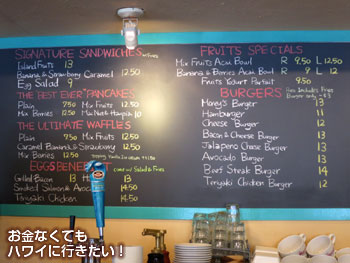 SIGNATURE SANDWICHES
Island Fruits 13
Banana & Strawberry Caramel 12.50
Egg Salad 9
THE BEST EVER "PANCAKES
Plain 7.50 Mix Fruits 12.50
Mix Berries 12.50
THE ULTIMATE WAFFLES
Plain 7.50 Mix Fruits
Caramel Banana & Strawberry 12.50
Mix Berries 12.50
EGGS BENEDICT
Grilled Bacon 13
Smoked Salmon & Avocado 14.50
Teriyaki Chicken 14.50
FRUITS SPECIALS
Mix Fruits Acai Bowl R 9.50 L 12.50
Banana & Berries Acai Bowl R 9 L 12
Fruits Yogurt Parfait 9.50
BURGERS
Honey's Burger 13
Hamburger 11
Cheese Burger 12
Bacon & Cheese Burger 13
Jalapeno Cheese Burger 13
Avocado Burger 13
Beef Steak Burger 14
Teriyaki Chicken Burger 12
お金なくても
ハワイに行きたい！